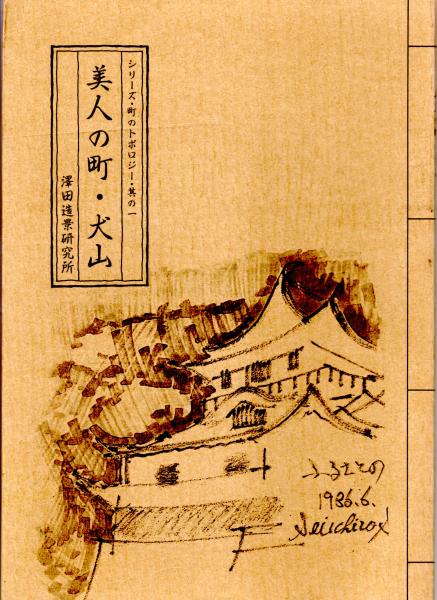 シリーズ・町のトポロジー・其の一
美人の町・犬山
澤田造景研究所
ふるさとの
1986.6.
Seiichiro